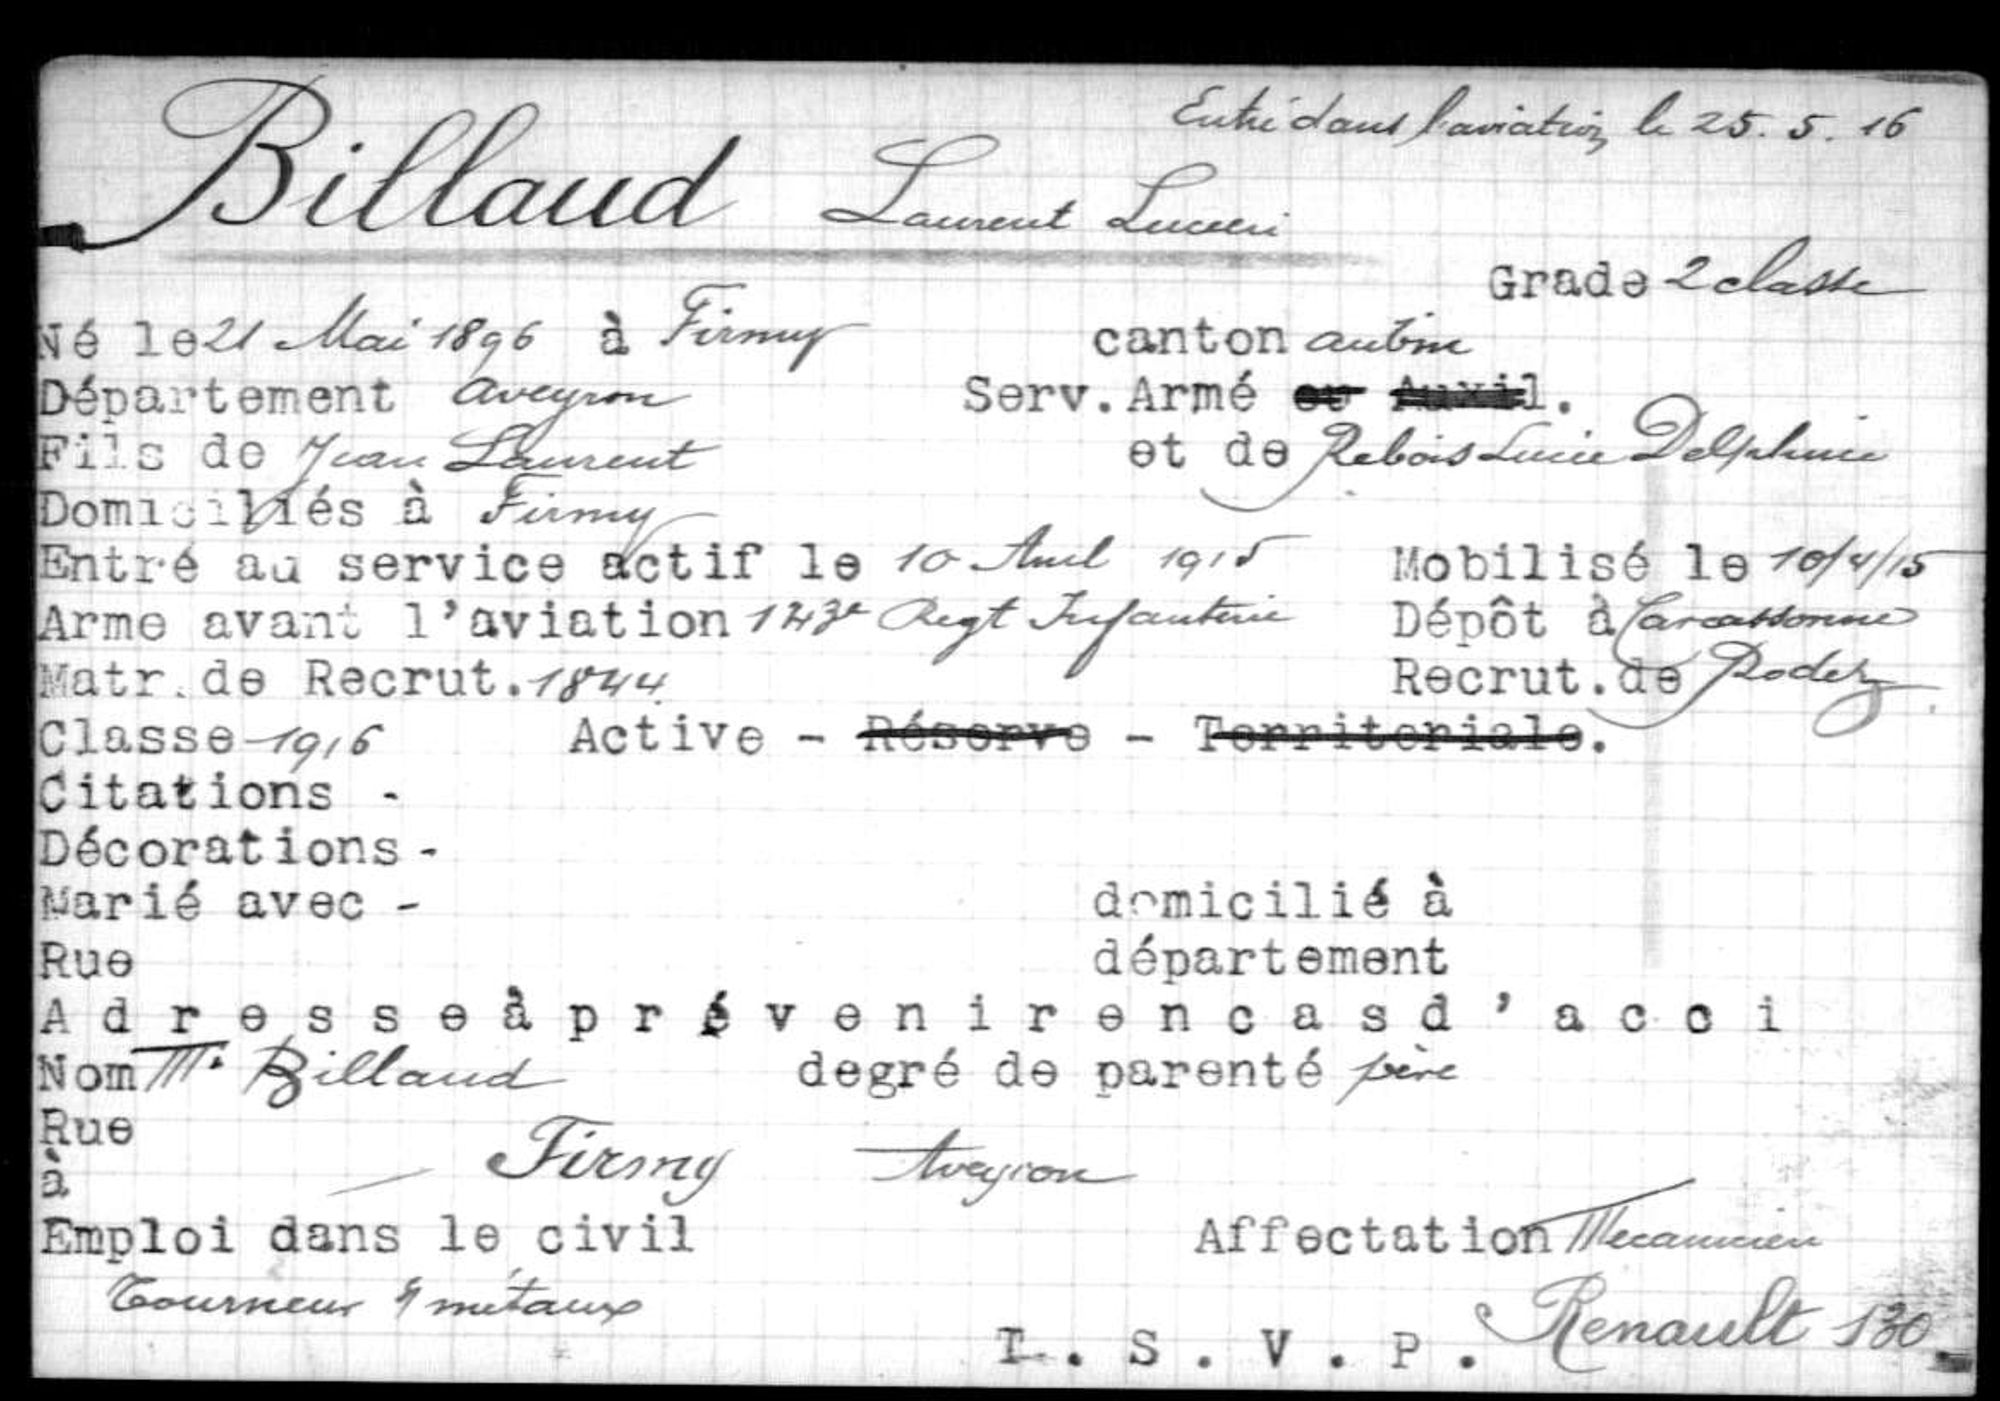 Entré dans l'aviation le 25. 5. 16
Billaud Laurent Lucien
Grade 2 classe
Né le 21 Mai 1896 à Firmy canton aubin
Département aveyron Serv. Armé ou Auxil.
Fils de Jean Laurent et de Rebois Lucie Delphine
Domiciliés à Firmy
Entré au service actif le 10 Avril 1915 Mobilisé le 10/4/15
Arme avant l'aviation 143e Regt Infanterie Dépôt à Carcassonne
Matr. de Recrut. 1844 Recrut. de Rodez
Classe 1916 Active - Réserve - Territoriale.
Citations -
Décorations -
Marié avec - domicilié à
Rue département
A d r e s s e à p r é v e n i r e n c a s d ' a c c i
Nom Mr Billaud degré de parenté père
Rue
à Firmy Aveyron
Emploi dans le civil Affectation Mecanicien
Tourneur s/ métaux
T. S. V. P. Renault 130